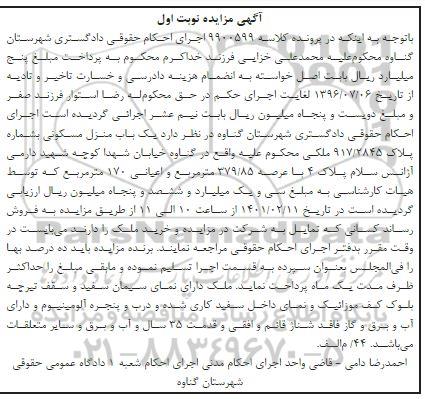 آگهی مزایده نوبت اول
باتوجه به اینکه در پرونده کلاسه ۹۹۰۰۵۹۹ اجرای احکام حقوقی دادگستری شهرستان
گناوه محکوم‌علیه محمدعلی خزایی فرزند خداکرم محکوم به پرداخت مبلغ پنج
میلیارد ریال بابت اصل خواسته به انضمام هزینه دادرسی و خسارت تاخیر و تادیه
از تاریخ ۱۳۹۶/۰۷/۰۶ لغایت اجرای حکم در حق محکوم‌له رضا استوار فرزند صفر
و مبلغ دویست و پنجاه میلیون ریال بابت نیم عشر اجرائی گردیده است اجرای
احکام حقوقی دادگستری شهرستان گناوه در نظر دارد یک باب منزل مسکونی بشماره
پلاک ۹۱۷/۲۸۴۵ ملکی محکوم علیه واقع در گناوه خیابان شهدا کوچه شهید دارمی
آژانس سلام پلاک ۴ با عرصه ۳۷۹/۸۵ مترمربع و اعیانی ۱۷۰ مترمربع که توسط
هیات کارشناسی به مبلغ سی و یک میلیارد و ششصد و پنجاه میلیون ریال ارزیابی
گردیده است در تاریخ ۱۴۰۱/۰۲/۱۱ از ساعت ۱۰ الی ۱۱ از طریق مزایده به فروش
رساند کسانی که تمایل به شرکت در مزایده و خرید ملک را دارند می‌بایست در
وقت مقرر بدفتر اجرای احکام حقوقی مراجعه نمایند. برنده مزایده باید ده درصد بها
را فی‌المجلس بعنوان سپرده به قسمت اجرا تسلیم نموده و مابقی مبلغ را حداکثر
ظرف مدت یک ماه پرداخت نماید. ملک دارای نمای سیمان سفید و سقف تیرچه
بلوک کف موزائیک و نمای داخل سفید کاری شده و درب و پنجره آلومینیوم و دارای
آب و برق و گاز فاقد شناژ قائم و افقی و قدمت ۳۵ سال و آب و برق و سایر متعلقات
می‌باشد. ۴۴/ م‌الف.
احمدرضا دامی - قاضی واحد اجرای احکام مدنی اجرای احکام شعبه ۱ دادگاه عمومی حقوقی
شهرستان گناوه
۰۲۱-۸۸۳۴۹۶۷۰